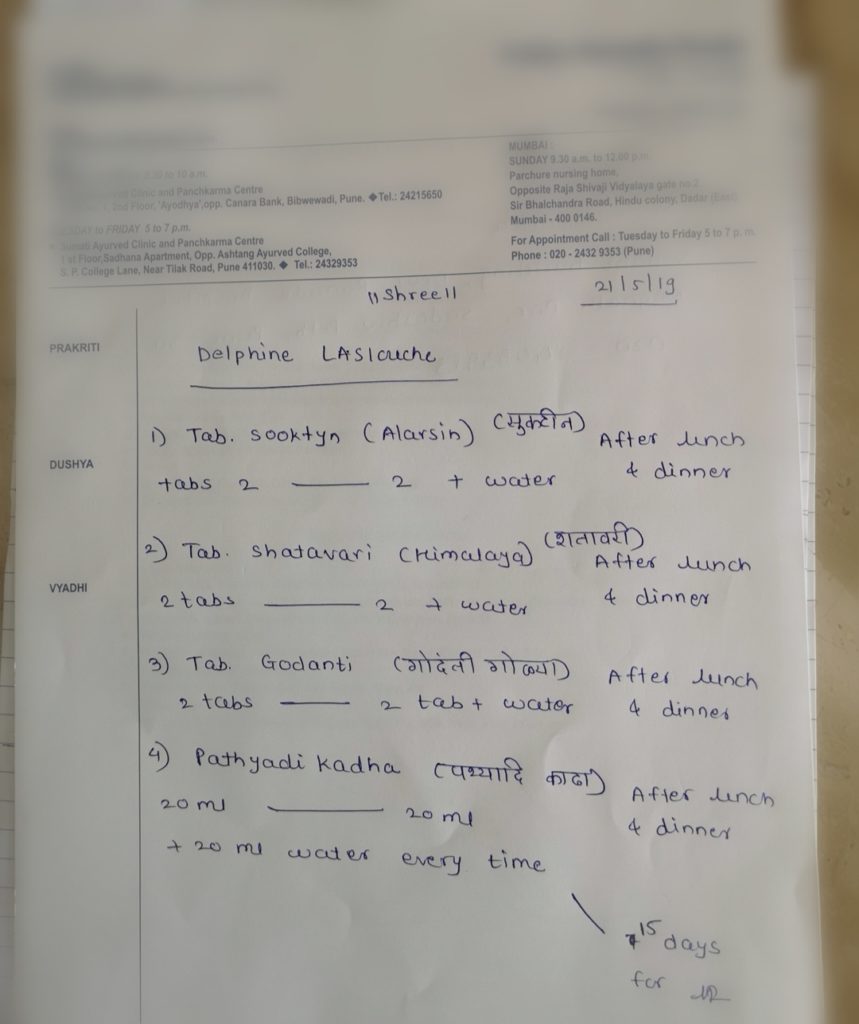 2.30 to 10 a.m.
Clinic and Panchkarma Centre
2nd Floor, 'Ayodhya',opp. Canara Bank, Bibwewadi, Pune. ◆Tel.: 24215650
to FRIDAY 5 to 7 p.m.
Ayurved Clinic and Panchkarma Centre
1st Floor,Sadhana Apartment, Opp. Ashtang Ayurved College,
S. P. College Lane, Near Tilak Road, Pune 411030. ◆ Tel.: 24329353
MUMBAI :
SUNDAY 9.30 a.m. to 12.00 p.m.
Parchure nursing home,
Opposite Raja Shivaji Vidyalaya gate no.2
Sir Bhalchandra Road, Hindu colony, Dadar (East)
Mumbai - 400 0146.
For Appointment Call : Tuesday to Friday 5 to 7 p. m.
Phone : 020 - 2432 9353 (Pune)
॥Shree॥
21/5/19
PRAKRITI
Delphine
1) Tab. Sooktyn (Alarsin) (सुक्टीन) After lunch
DUSHYA
tabs 2 —— 2 + water & dinner
2) Tab. Shatavari (Himalaya) (शतावरी) After lunch
VYADHI
2 tabs —— 2 + water & dinner
3) Tab. Godanti (गोदंती गोळ्या) After lunch
2 tabs —— 2 tab + water & dinner
4) Pathyadi Kadha (पथ्यादि काढा) After lunch
20 ml —— 20 ml & dinner
+ 20 ml water every time
15 days
for